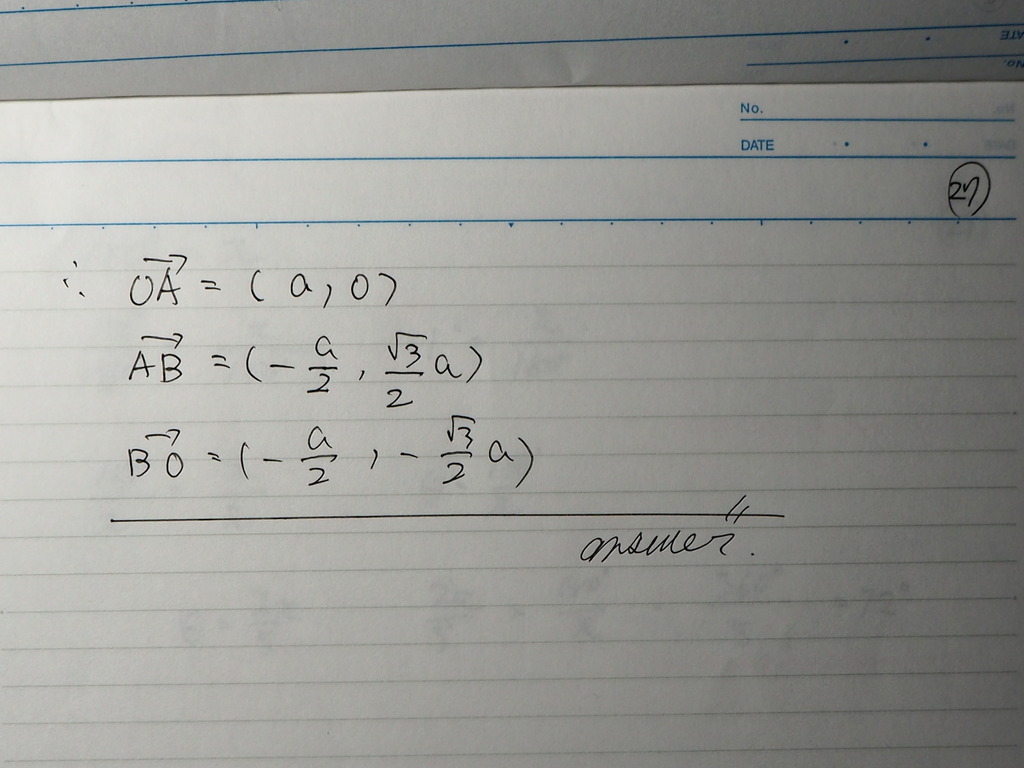 No.
DATE
27
∴ →OA = (a, 0)
→AB = (-a/2, √3/2 a)
→BO = (-a/2, -√3/2 a)
answer.